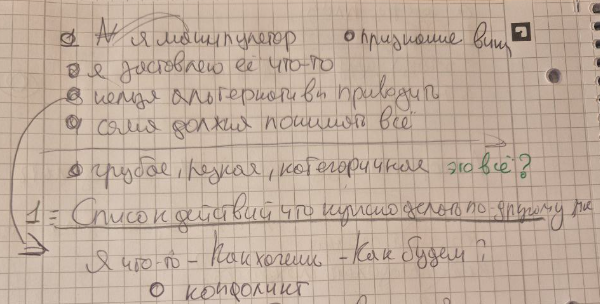 я манипулятор о признание вины
я заставляю её что-то
нельзя альтернативы приводить
сама должна понимать всё
грубая, резкая, категоричная это всё?
1 = Список действий что нужно делать по-другому
Я что-то - Как хочешь - Как будем?
о конфликт